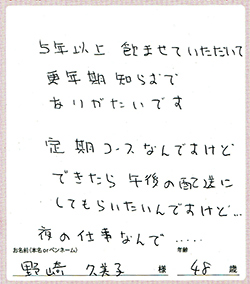 5年以上 飲ませていただいて
更年期知らずで
ありがたいです
定期コースなんですけど
できたら午後の配送に
してもらいたいんですけど…
夜の仕事なんで……
お名前(本名orペンネーム) 年齢
野崎 久美子 様 48 歳